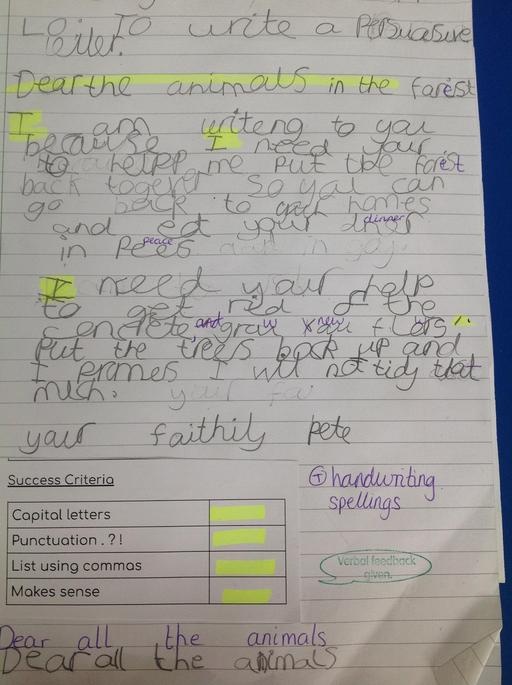 L.o. To write a Persuasive
leiler.
Dear the animals in the farest
I am writeng to you
because I need your
to helpp me put the farest
back togeter so you can
go back to homes
and eat your dinner
in Pees peace
I need your help
to get rid of the
concreto and graw new flors.
Put the trees back up and
I prmes I will not tidy that
much.
your faithily pete
Success Criteria
Capital letters
Punctuation . ? !
List using commas
Makes sense
T handwriting
spellings
Verbal feedback
given.
Dear all the animals
Dear all the animals